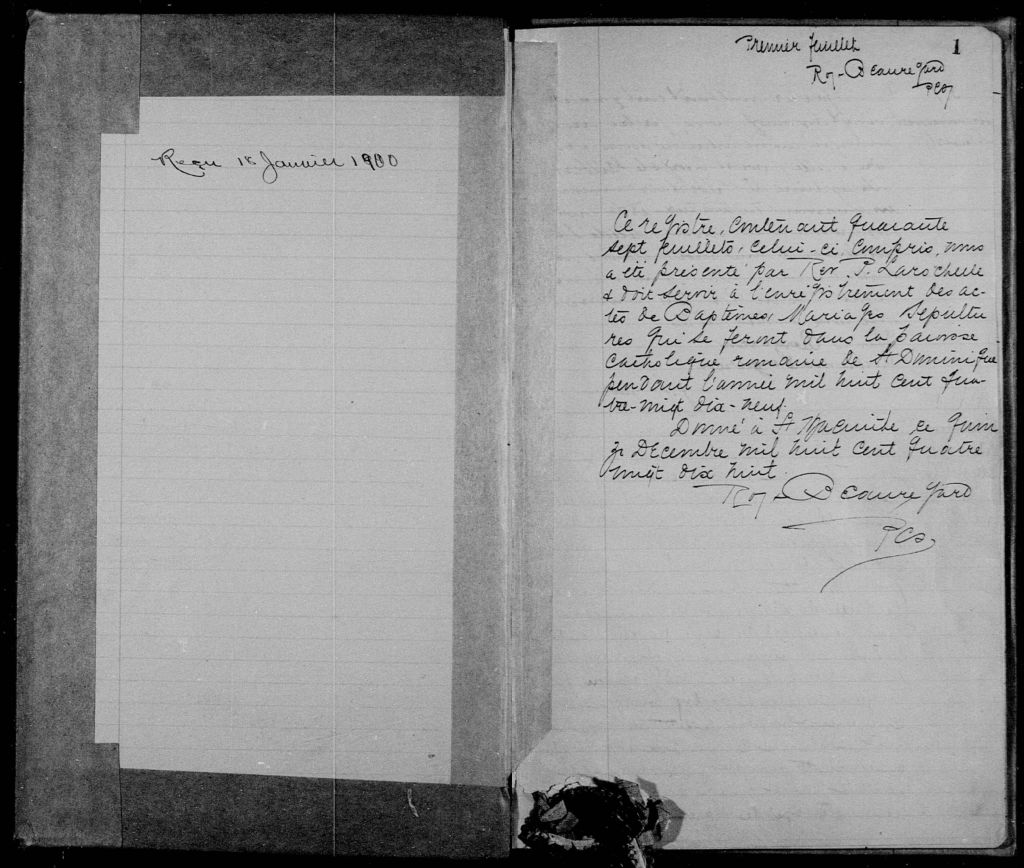 Reçu 18 Janvier 1900
Premier feuillet
1
Roy-Beauregard
PCS
Ce registre, contenant quarante
sept feuillets, celui-ci compris, nous
a été présenté par Rev. P. Larochelle
& doit servir à l'enregistrement des ac-
tes de Baptêmes, Mariages Sepultu
res qui se feront dans la Paroisse
Catholique romaine de St Dominique
pendant l'année mil huit cent qua-
tre-vingt dix-neuf.
Donné à St Hyacinthe ce quin
ze Décembre mil huit cent quatre
vingt dix huit.
Roy-Beauregard
PCS